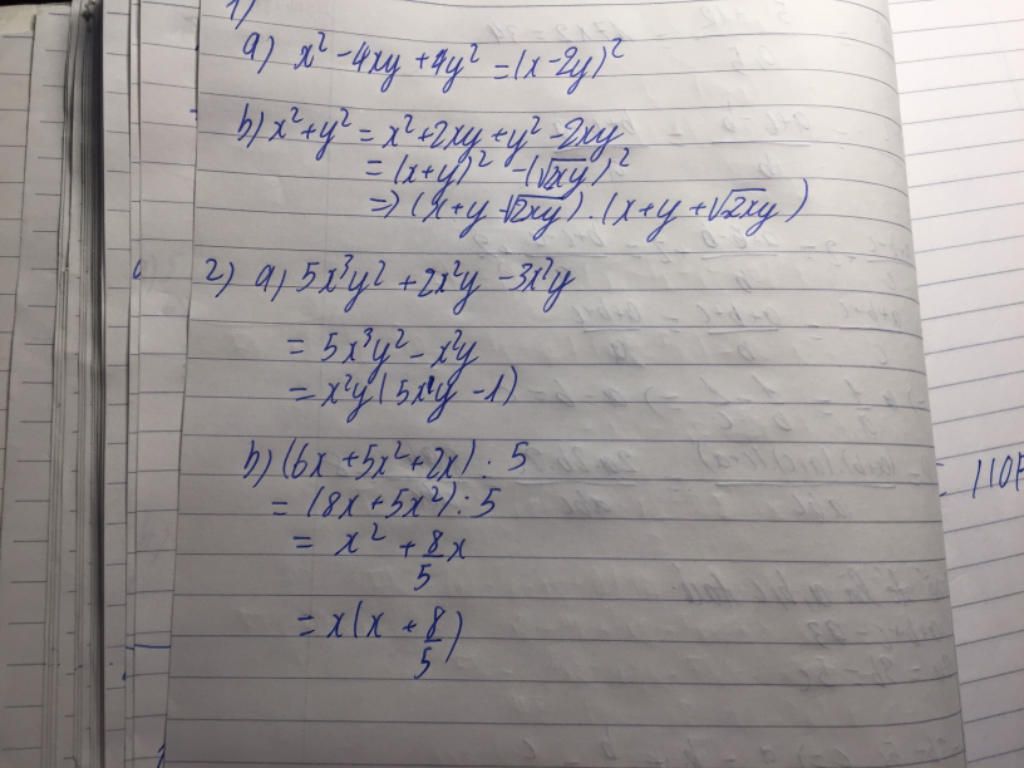 1)
a) x² - 4xy + 4y² = (x - 2y)²
b) x² + y² = x² + 2xy + y² - 2xy
= (x + y)² - (√2xy)²
=> (x + y - √2xy) . (x + y + √2xy)
2) a) 5x³y² + 2x²y - 3x²y
= 5x³y² - x²y
= x²y(5xy - 1)
b) (6x + 5x² + 2x) : 5
= (8x + 5x²) : 5
= x² + 8/5 x
= x(x + 8/5)
= 110